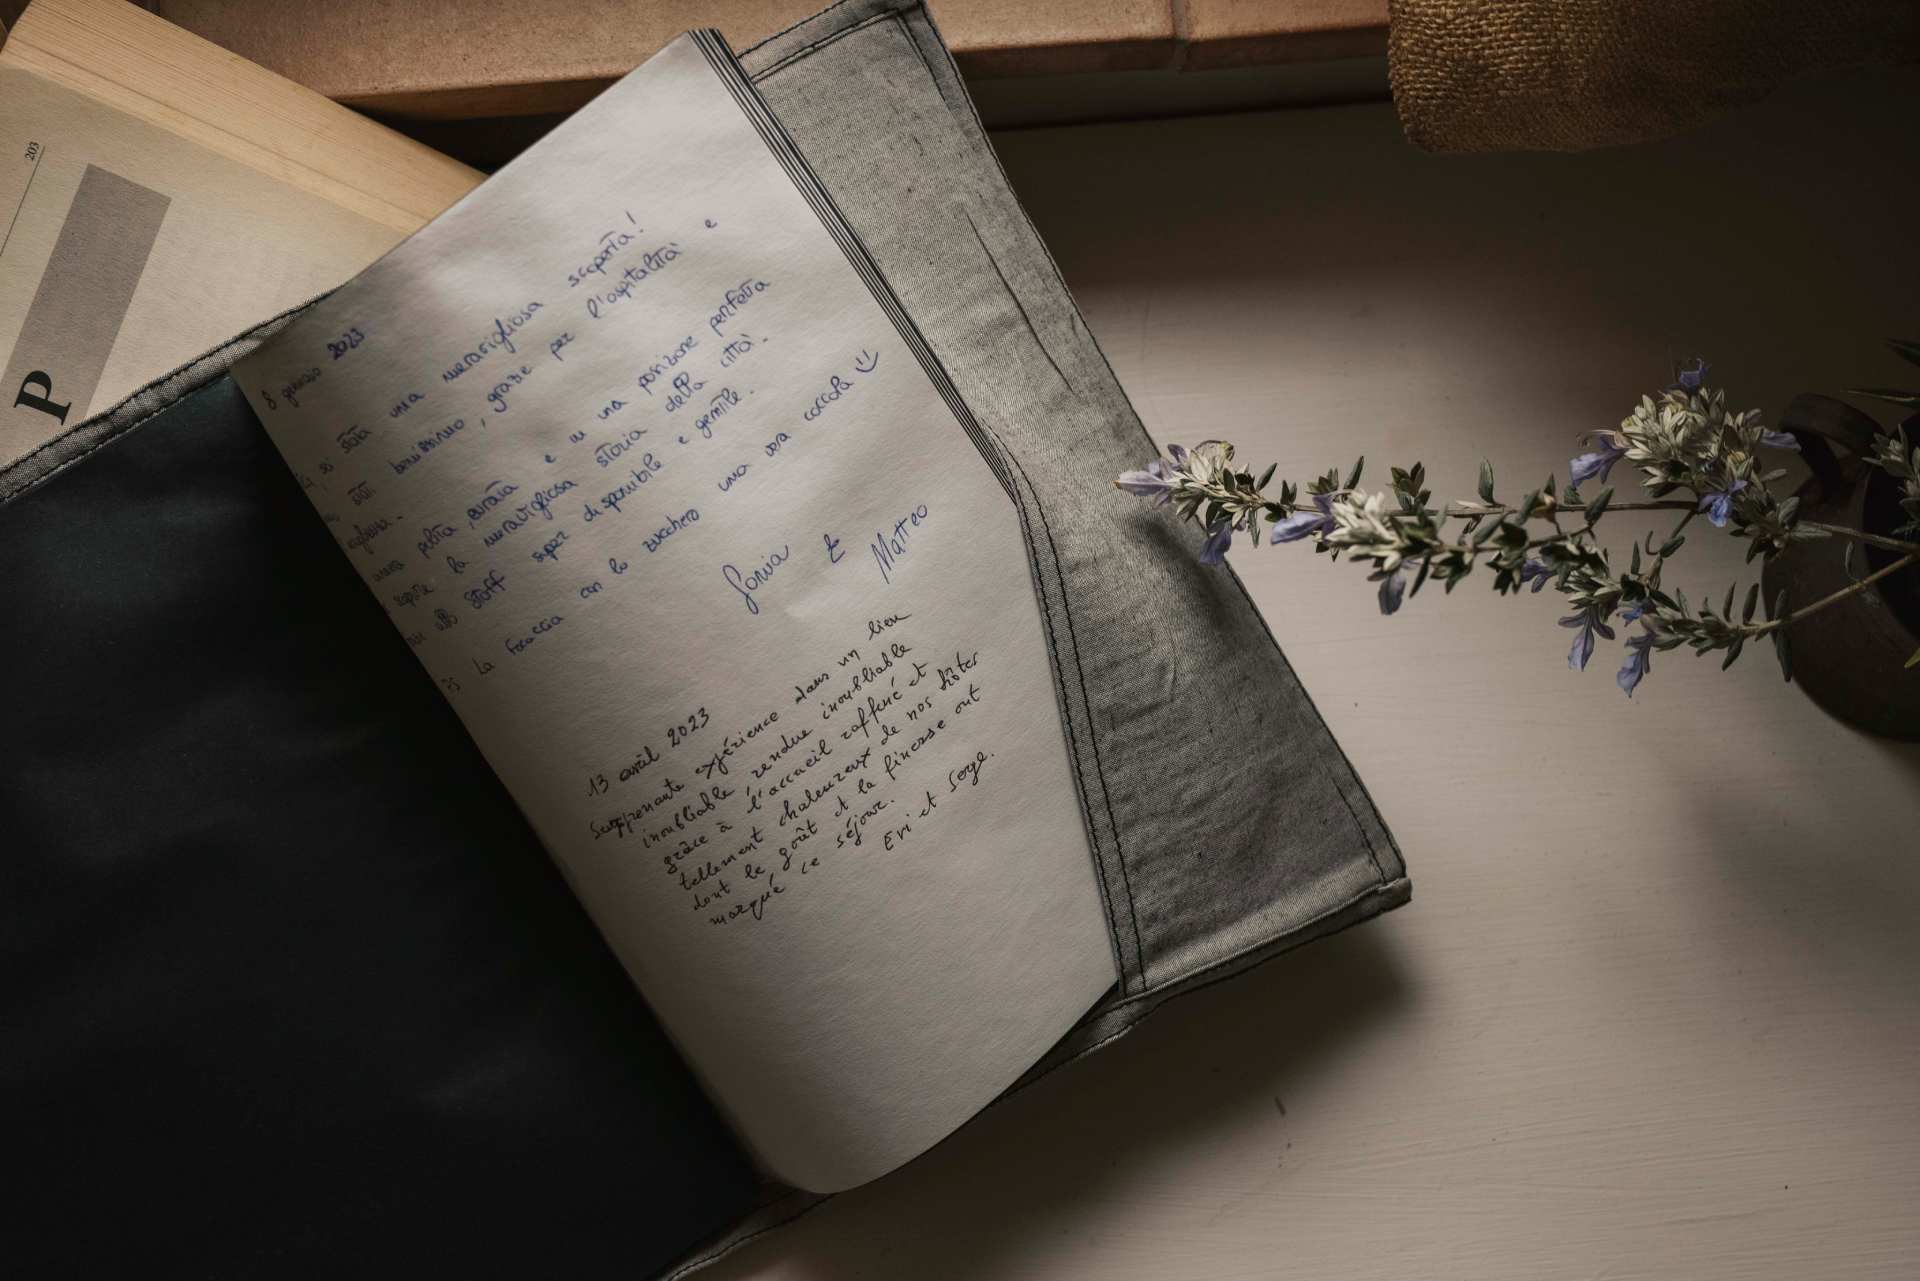 203
P
8 gennaio 2023
si è stata una meravigliosa scoperta!
stati benissimo, grazie per l'ospitalità e
camera pulita, curata e in una posizione perfetta
scoprire la meravigliosa storia della città.
allo staff super disponibile e gentile.
La focaccia con lo zucchero una vera coccola :)
Sonia & Matteo
13 avril 2023
Surprenante expérience dans un lieu
inoubliable rendue inoubliable
grâce à l'accueil raffiné et
tellement chaleureux de nos hôtes
dont le goût et la finesse ont
marqué ce séjour.
Evi et Serge.